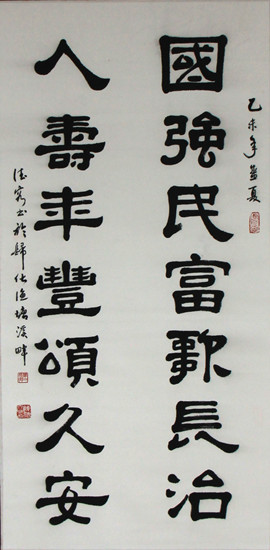 乙未年夏
國強民富歌長治
人壽年豐頌久安
德书於歸化漁塘溪畔